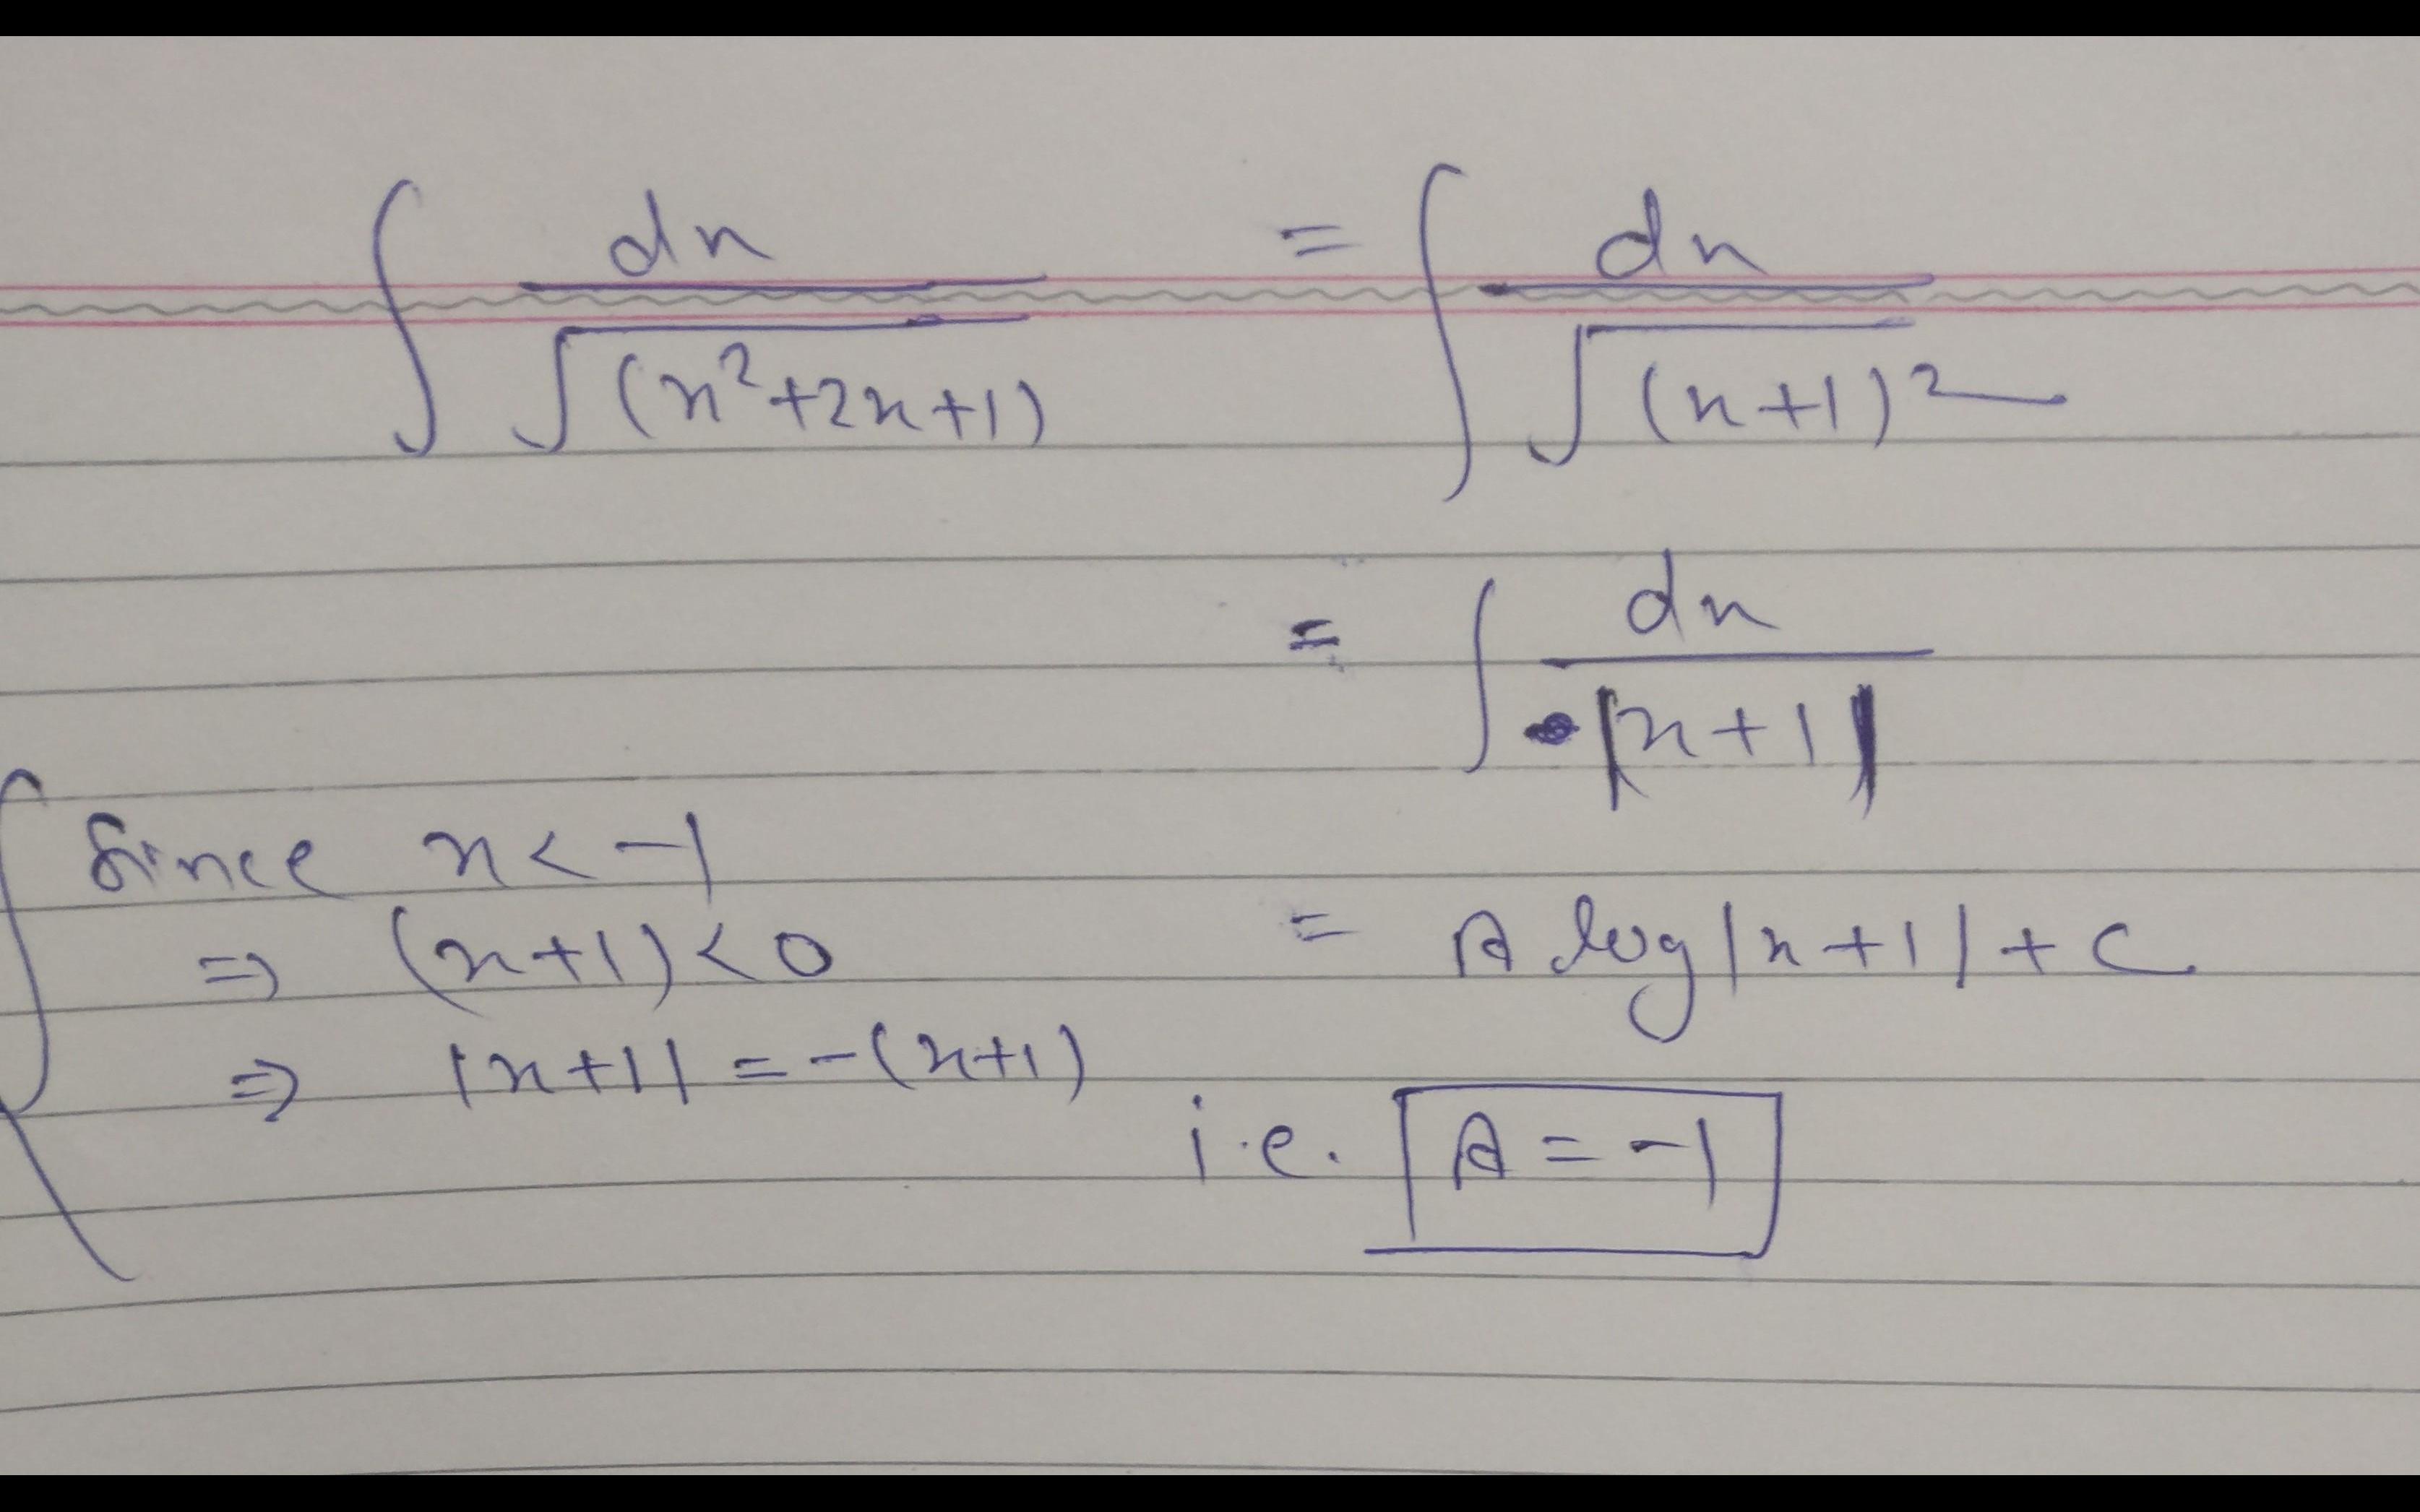 ∫ dx/√(x²+2x+1) = ∫ dx/√(x+1)²
= ∫ dx/|x+1|
Since x < -1
⇒ (x+1) < 0
= A log|x+1| + C
⇒ |x+1| = -(x+1)
i.e. A = -1